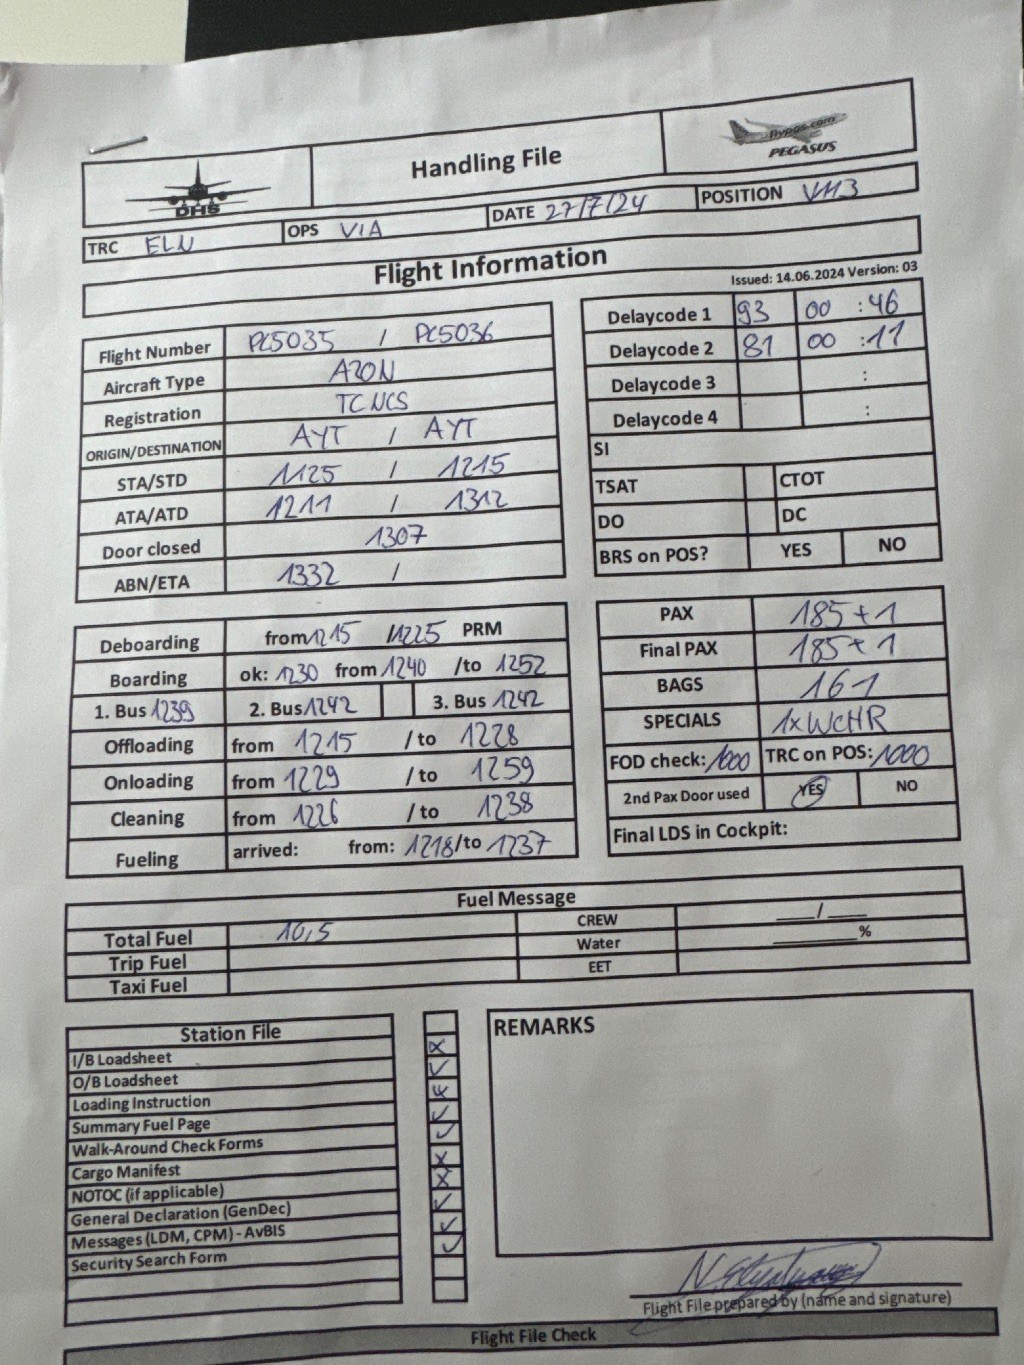 DHS
Handling File
flypgs.com
PEGASUS
TRC ELN OPS VIA DATE 27/7/24 POSITION VM3
Flight Information
Issued: 14.06.2024 Version: 03
Flight Number PC5035 / PC5036
Aircraft Type A20N
Registration TCNCS
ORIGIN/DESTINATION AYT / AYT
STA/STD 1125 / 1215
ATA/ATD 1211 / 1312
Door closed 1307
ABN/ETA 1332 /
Delaycode 1 93 00 :46
Delaycode 2 81 00 :11
Delaycode 3 :
Delaycode 4 :
SI
TSAT CTOT
DO DC
BRS on POS? YES NO
Deboarding from 1215 /1225 PRM
Boarding ok: 1230 from 1240 /to 1252
1. Bus 1239 2. Bus 1242 3. Bus 1242
Offloading from 1215 /to 1228
Onloading from 1229 /to 1259
Cleaning from 1226 /to 1238
Fueling arrived: from: 1218/to 1237
PAX 185+1
Final PAX 185+1
BAGS 161
SPECIALS 1xWCHR
FOD check: 1000 TRC on POS: 1000
2nd Pax Door used YES NO
Final LDS in Cockpit:
Fuel Message
Total Fuel 10,5 CREW ___/___
Trip Fuel Water ______%
Taxi Fuel EET
Station File
I/B Loadsheet x
O/B Loadsheet ✓
Loading Instruction x
Summary Fuel Page ✓
Walk-Around Check Forms ✓
Cargo Manifest x
NOTOC (if applicable) x
General Declaration (GenDec) ✓
Messages (LDM, CPM) - AvBIS ✓
Security Search Form ✓
REMARKS
Flight File prepared by (name and signature)
Flight File Check